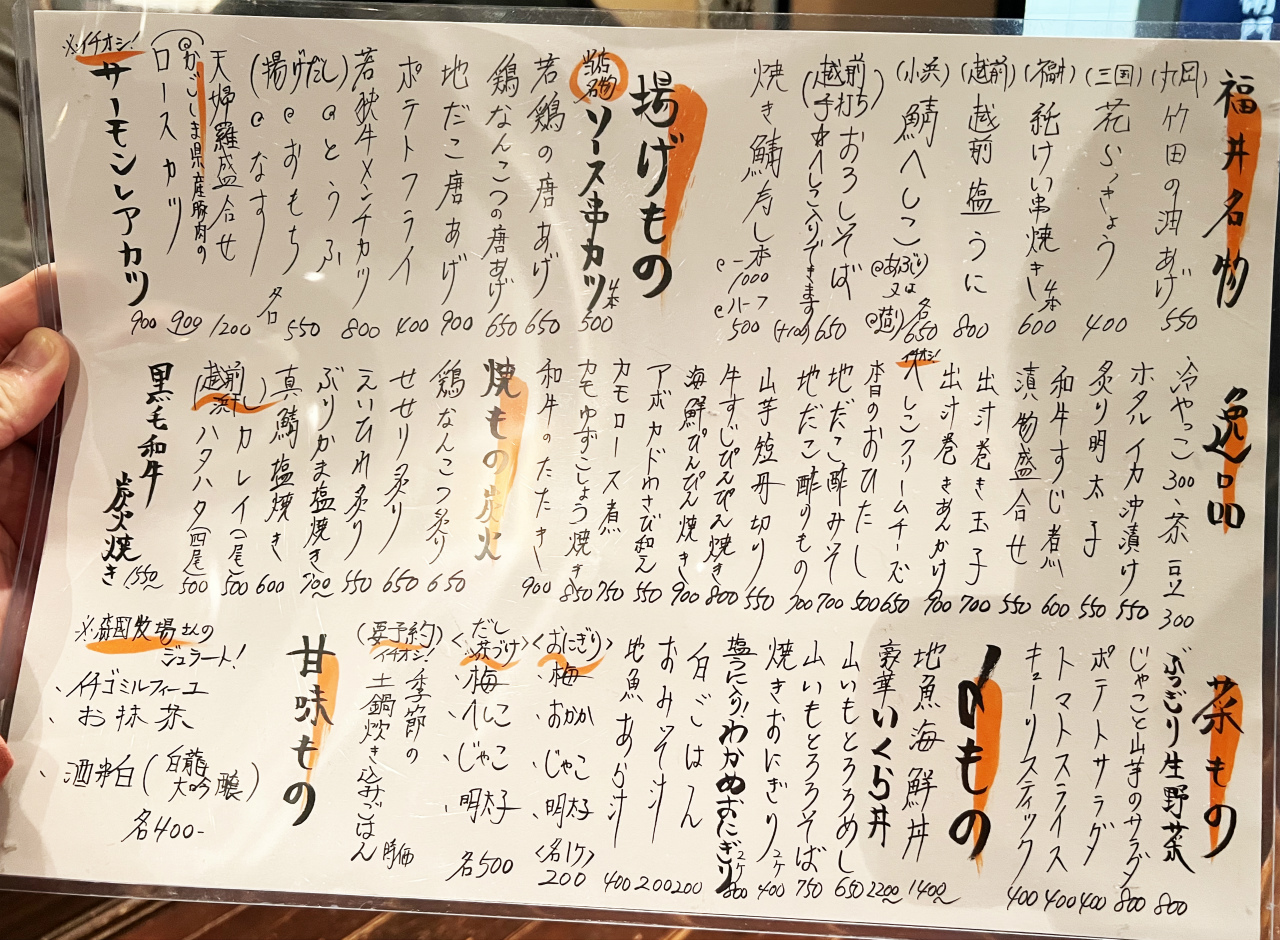 福井名物
(丸岡)竹田の油あげ 550
(三国)花らっきょう 400
(福井)純けい串焼き 4本 600
(越前)越前塩うに 800
(小浜)鯖へしこ @あぶり又は 各650
(越前手打ち)おろしそば 650
へしこ入りできます (+100)
焼き鯖寿し @一本 1000 @ハーフ 500
揚げもの
当店名物 ソース串カツ 4本 500
若鶏の唐あげ 650
鶏なんこつの唐あげ 650
地だこ唐あげ 900
ポテトフライ 400
若狭牛メンチカツ 800
(揚げだし) @とうふ @おもち @なす 各550
天婦羅盛合せ 1200
@かごしま県産豚肉のロースカツ 900
※イチオシ! サーモンレアカツ 900
逸品
冷やっこ 300、茶豆 300
ホタルイカ沖漬け 550
炙り明太子 550
和牛すじ煮 600
漬物盛合せ 550
出汁巻き玉子 700
出汁巻きあんかけ 900
イチオシ! へしこクリームチーズ 650
本日のおひたし 500
地だこ酢みそ 700
地だこ酢のもの 700
山芋短冊切り 550
牛すじぴんぴん焼き 800
海鮮ぴんぴん焼き 900
アボカドわさび和え 550
カモロース煮 750
カモゆずこしょう焼き 850
和牛のたたき 900
焼もの炭火
鶏なんこつ炙り 650
せせり炙り 650
えいひれ炙り 550
ぶりかま塩焼き 700~
真鯖塩焼き 600
(越前浜干し) カレイ(一尾) 500
ハタハタ(四尾) 500
黒毛和牛炭火焼き 1550~
菜もの
ぶつぎり生野菜 800
じゃこと山芋のサラダ 800
ポテトサラダ 400
トマトスライス 400
キューリスティック 400
〆もの
地魚海鮮丼 1400~
豪華いくら丼 2200~
山いもとろろめし 650
山いもとろろそば 750
焼きおにぎり 2ヶ 400
塩うに入り!わかめおにぎり 2ヶ 800
白ごはん 200
おみそ汁 200
地魚あら汁 400
<おにぎり>
、梅
、おかか
、じゃこ
、明太子
<各1ケ> 200
<だし茶づけ>
、梅
、へしこ
、じゃこ
、明太子
各500
(要予約)
イチオシ! 季節の土鍋炊き込みごはん 時価
甘味もの
※森國牧場さんのジェラート!
、イチゴミルフィーユ
、お抹茶
、酒粕(白龍大吟醸)
各400-